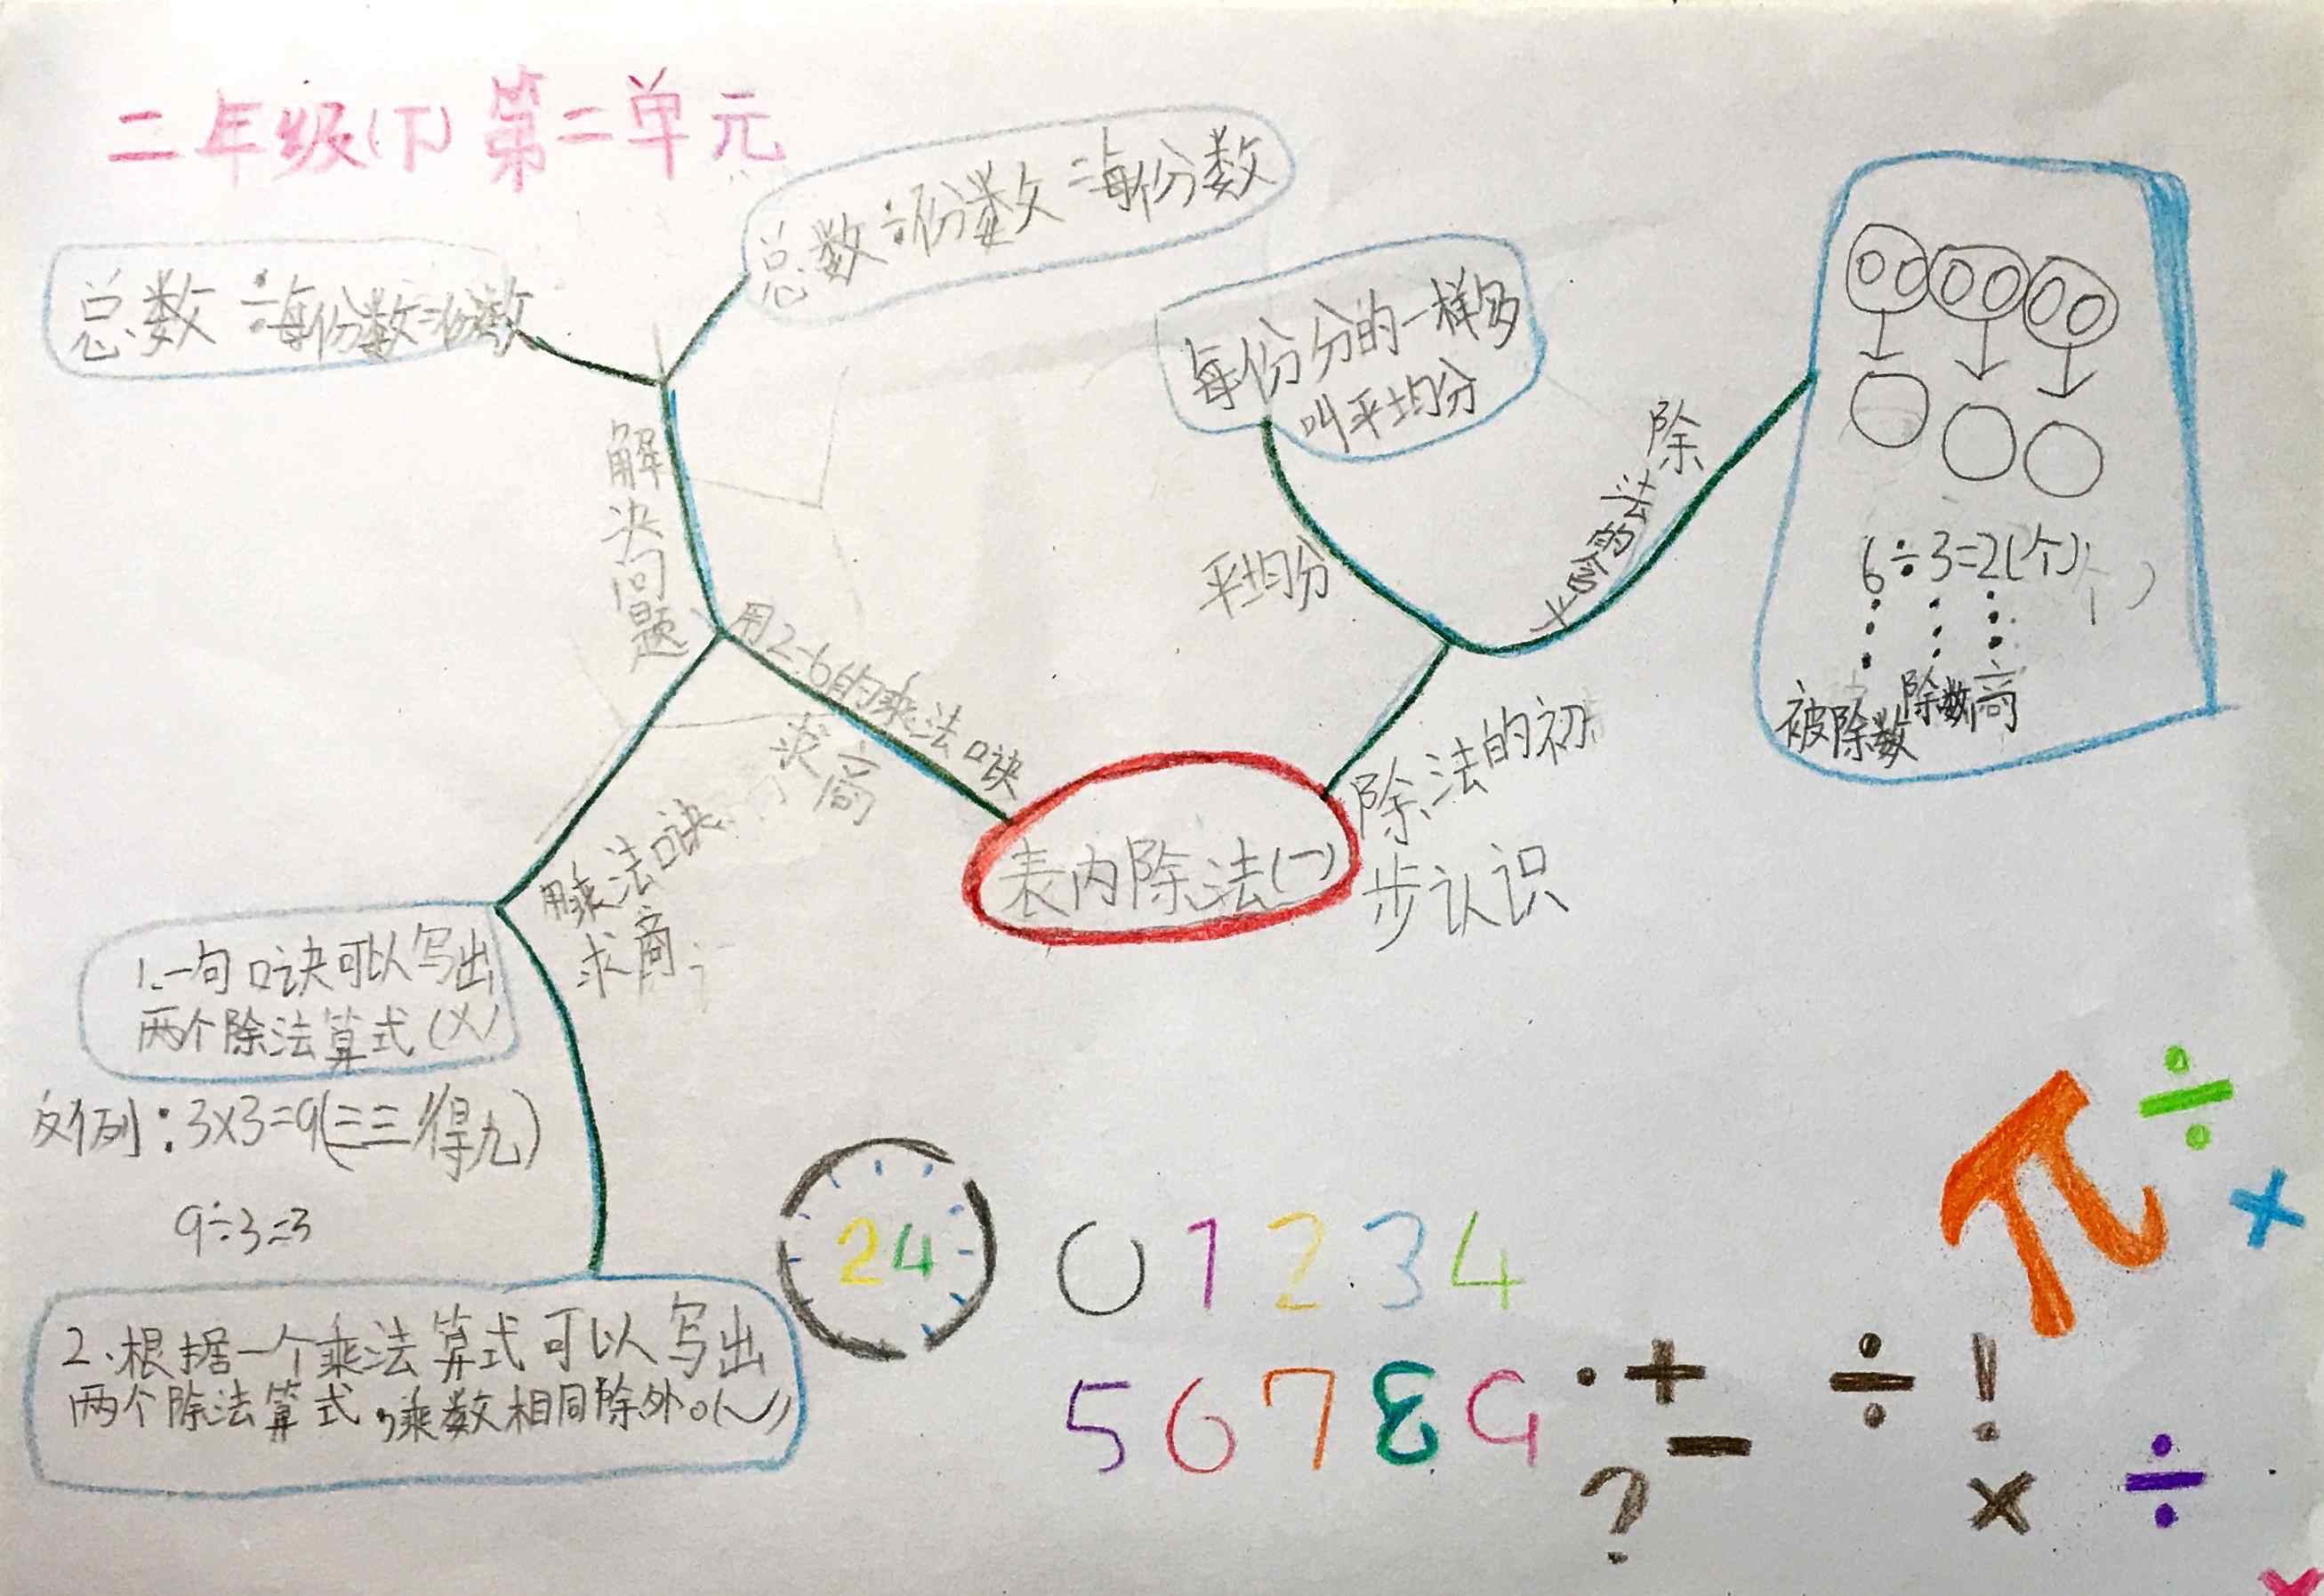 二年级(下)第二单元
总数÷份数=每份数
总数÷每份数=份数
每份分的一样多
叫平均分
解决问题
平均分
除法的含义
6÷3=2(个)
被除数 除数 商
用2-6的乘法口诀
求商
除法的初
步认识
表内除法(一)
用乘法口诀
求商
1.一句口诀可以写出
两个除法算式(×)
反例:3×3=9(三三得九)
9÷3=3
2.根据一个乘法算式可以写出
两个除法算式,乘数相同除外。(√)
24
0 1 2 3 4
5 6 7 8 9
· + - ÷ !
? × ÷
π ÷ ×